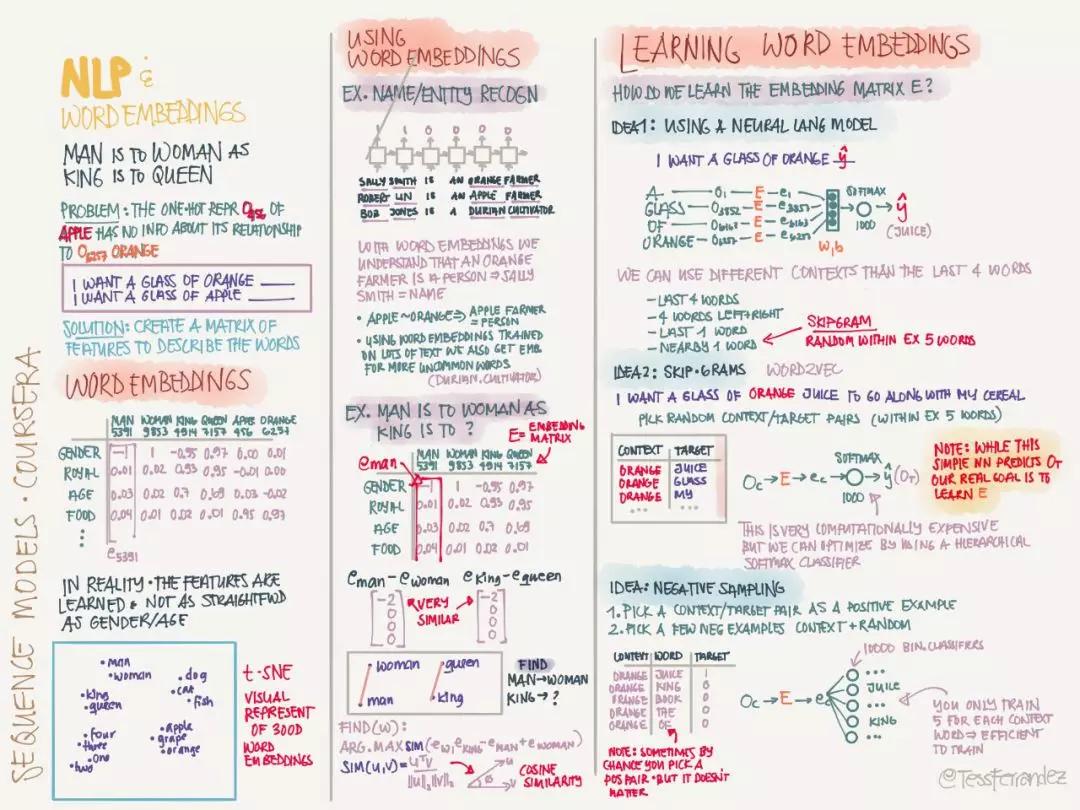 SEQUENCE MODELS · COURSERA
NLP &
WORD EMBEDDINGS
MAN IS TO WOMAN AS
KING IS TO QUEEN
PROBLEM: THE ONE-HOT REPR O456 OF
APPLE HAS NO INFO ABOUT ITS RELATIONSHIP
TO O6257 ORANGE
I WANT A GLASS OF ORANGE ____
I WANT A GLASS OF APPLE ____
SOLUTION: CREATE A MATRIX OF
FEATURES TO DESCRIBE THE WORDS
WORD EMBEDDINGS
MAN WOMAN KING QUEEN APPLE ORANGE
5391 9853 4914 7157 456 6257
GENDER -1 1 -0.95 0.97 0.00 0.01
ROYAL 0.01 0.02 0.93 0.95 -0.01 0.00
AGE 0.03 0.02 0.7 0.69 0.03 -0.02
FOOD 0.04 0.01 0.02 0.01 0.95 0.97
e5391
IN REALITY · THE FEATURES ARE
LEARNED & NOT AS STRAIGHTFWD
AS GENDER/AGE
man
woman
dog
cat
fish
king
queen
four
three
one
two
apple
grape
orange
t-SNE
VISUAL
REPRESENT
OF 300D
WORD
EMBEDDINGS
USING
WORD EMBEDDINGS
EX. NAME/ENTITY RECOGN
1 1 0 0 0 0
SALLY SMITH IS AN ORANGE FARMER
ROBERT LIN IS AN APPLE FARMER
BOB JONES IS A DURIAN CULTIVATOR
WITH WORD EMBEDDINGS WE
UNDERSTAND THAT AN ORANGE
FARMER IS A PERSON ⇒ SALLY
SMITH = NAME
• APPLE ~ ORANGE ⇒ APPLE FARMER
= PERSON
• USING WORD EMBEDDINGS TRAINED
ON LOTS OF TEXT WE ALSO GET EMB.
FOR MORE UNCOMMON WORDS
(DURIAN, CULTIVATOR)
EX. MAN IS TO WOMAN AS
KING IS TO ?
E = EMBEDDING
MATRIX
eman
MAN WOMAN KING QUEEN
5391 9853 4914 7157
GENDER -1 1 -0.95 0.97
ROYAL 0.01 0.02 0.93 0.95
AGE 0.03 0.02 0.7 0.69
FOOD 0.04 0.01 0.02 0.01
eman - ewoman eking - equeen
-2 -2
0 0
0 0
0 0
VERY
SIMILAR
woman queen
man king
FIND
MAN → WOMAN
KING → ?
FIND(W):
ARG.MAX SIM(ew, eking - eman + ewoman)
SIM(u,v) = uTv / ||u||2 ||v||2
u
Φ
v
COSINE
SIMILARITY
LEARNING WORD EMBEDDINGS
HOW DO WE LEARN THE EMBEDDING MATRIX E?
IDEA 1: USING A NEURAL LANG MODEL
I WANT A GLASS OF ORANGE ŷ
A — O1 — E — e1
GLASS — O3852 — E — e3852
OF — O6163 — E — e6163
ORANGE — O6257 — E — e6257
W,b
SOFTMAX
1000
ŷ
(JUICE)
WE CAN USE DIFFERENT CONTEXTS THAN THE LAST 4 WORDS
- LAST 4 WORDS
- 4 WORDS LEFT+RIGHT
- LAST 1 WORD
- NEARBY 1 WORD
SKIPGRAM
RANDOM WITHIN EX 5 WORDS
IDEA 2: SKIP-GRAMS WORD2VEC
I WANT A GLASS OF ORANGE JUICE TO GO ALONG WITH MY CEREAL
PICK RANDOM CONTEXT/TARGET PAIRS (WITHIN EX 5 WORDS)
CONTEXT TARGET
ORANGE JUICE
ORANGE GLASS
ORANGE MY
... ...
Oc → E → ec → ŷ (OT)
SOFTMAX
1000
NOTE: WHILE THIS
SIMPLE NN PREDICTS OT
OUR REAL GOAL IS TO
LEARN E
THIS IS VERY COMPUTATIONALLY EXPENSIVE
BUT WE CAN OPTIMIZE BY USING A HIERARCHICAL
SOFTMAX CLASSIFIER
IDEA: NEGATIVE SAMPLING
1. PICK A CONTEXT/TARGET PAIR AS A POSITIVE EXAMPLE
2. PICK A FEW NEG EXAMPLES CONTEXT + RANDOM
CONTEXT WORD TARGET
ORANGE JUICE 1
ORANGE KING 0
ORANGE BOOK 0
ORANGE THE 0
ORANGE OF 0
NOTE: SOMETIMES BY
CHANCE YOU PICK A
POS PAIR · BUT IT DOESN'T
MATTER
Oc → E → ec
10000 BIN. CLASSIFIERS
...
JUICE
...
KING
...
YOU ONLY TRAIN
5 FOR EACH CONTEXT
WORD ⇒ EFFICIENT
TO TRAIN
@TessFerrandez